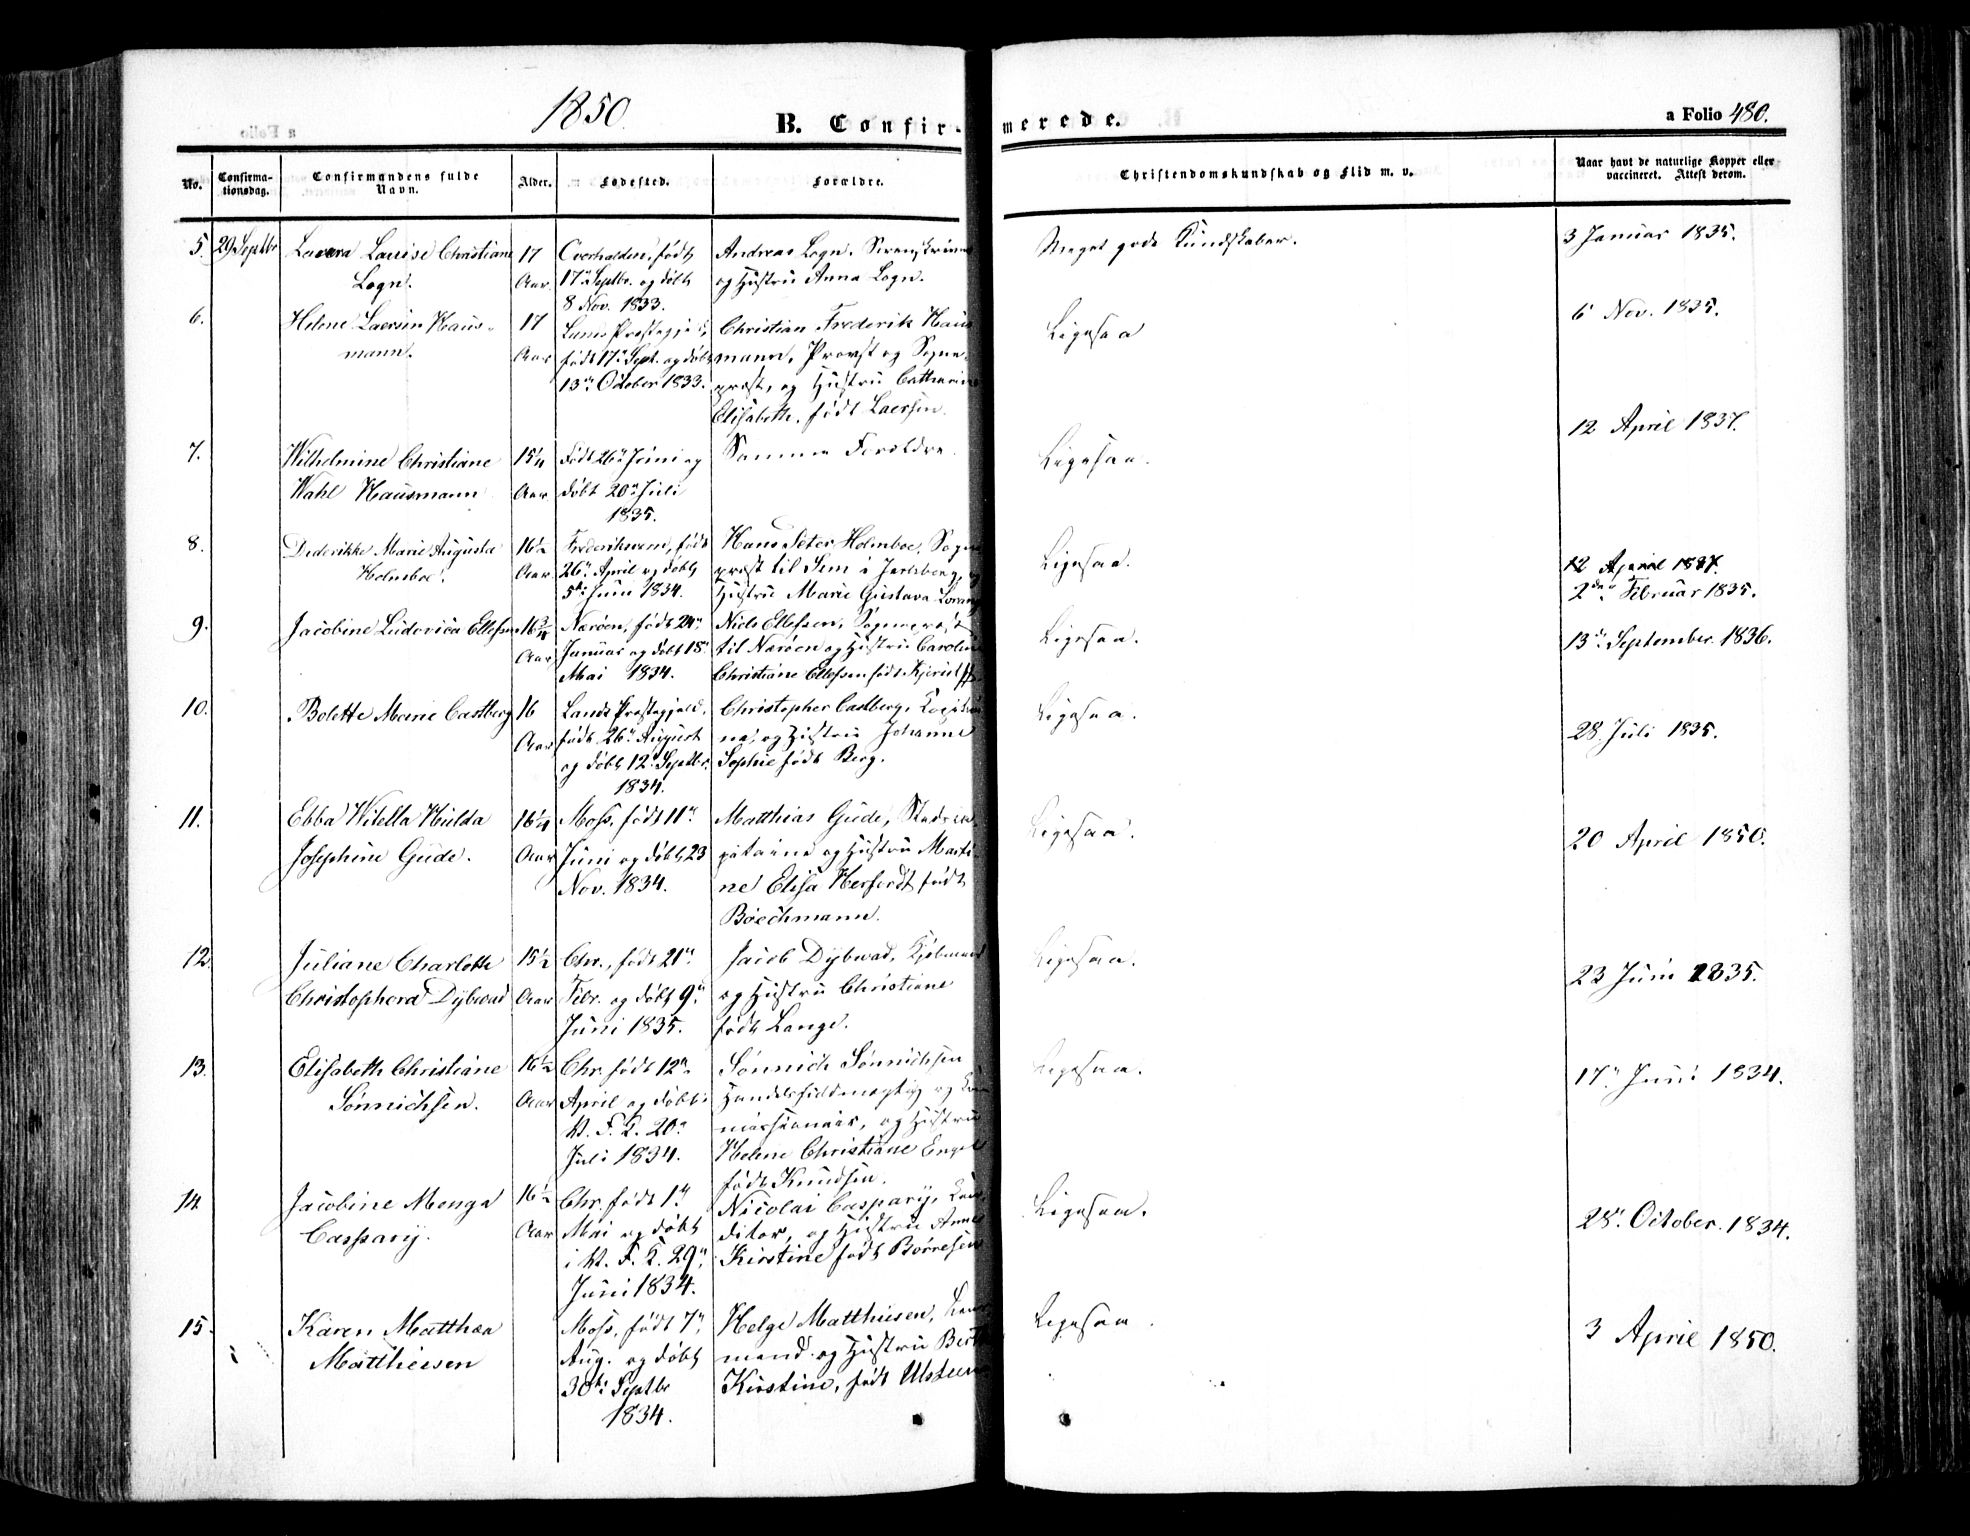 1850
B. Confirmerede.
a Folio 480.
No.
Confirmationsdag.
Confirmandens fulde Navn.
Alder.
Fødested.
Forældre.
Christendomskundskab og Flid m. v.
Naar havt de naturlige Kopper eller vaccineret. Attest derom.
5. 29 Septbr
Laura Louise Christiane
Logn.
17
Aar
Overhalden, født
17de Septbr. og døbt
8 Nov. 1833.
Andreas Logn,
og Hustru Anna Logn.
Meget gode Kundskaber.
3 Januar 1835.
6.
Helene Laersen Haus-
mann.
17
Aar
Lands Præstegjeld,
født 17de Sept. og døbt
13de October 1833.
Christian Frederik Haus
mann, Provst og Sogne-
præst, og Hustru Catharine
Elisabeth, født Laersen.
Ligesaa
6 Nov. 1835.
7.
Wilhelmine Christiane
Wahl Hausmann
15¼
Aar
Født 26de Juni og
døbt 20de Juli
1835.
Samme Forældre.
Ligesaa.
12 April 1837.
8.
Dederikke Marie Augusta
Holmboe.
16½
Aar
Frederiksværn, født
26de April og døbt
5te Juni 1834.
Hans Peter Holmboe, Sogne
præst til Sem i Jarlsberg, og
Hustru Marie Gustava
Ligesaa.
12 April 1837.
2den Februar 1835.
9.
Jacobine Ludovica Ellefsen
16¾
Aar
Nærøen, født 24de
Januar og døbt 18de
Mai 1834.
Niels Ellefsen, Sognepræst
til Nærøen og Hustru Caroline
Christiane Ellefsen født
Ligesaa.
13de September 1836.
10.
Bolette Marie Castberg
16
Aar
Lands Præstegjeld,
født 26de August
og døbt 12te Septbr.
1834.
Christopher Castberg,
og Hustru Johanne
Sophie født Berg.
Ligesaa.
28 Juli 1835.
11.
Ebba Witella Hulda
Josephine Gude.
16¼
Aar
Moss, født 11te
Juni og døbt 23
Nov. 1834.
Matthias Gude,
og Hustru Marti-
ne Elisa Herfordt født
Boeckmann.
Ligesaa.
20 April 1850.
12.
Juliane Charlotte
Christophora Dybwad
15½
Aar
Chr., født 21de
Febr. og døbt 9de
Juni 1835.
Jacob Dybwad, Kjøbmand
og Hustru Christiane
født Lange.
Ligesaa.
23 Juni 1835.
13.
Elisabeth Christiane
Sønnichsen.
16½
Aar
Chr. født 12te
April og døbt i
V. F. K. 20de
Juli 1834.
Sønnich Sønnichsen
Handelsfuldmægtig og Kom
missionair, og Hustru
Helene Christiane Engel
født Knudsen.
Ligesaa.
17de Juni 1834.
14
Jacobine Menga
Caspary.
16½
Aar
Chr. født 1de
Mai og døbt
i V. F. K. 29de
Juni 1834.
Nicolai Caspary, Kon
ditor, og Hustru Anne
Kirstine født Børresen
Ligesaa.
28de October 1834.
15.
Karen Matthea
Matthiesen
Moss, født 7de
Aug. og døbt
30te Septbr
1834.
Helge Matthiesen,
mand og Hustru
Kirstine, født
Ligesaa.
3 April 1850.